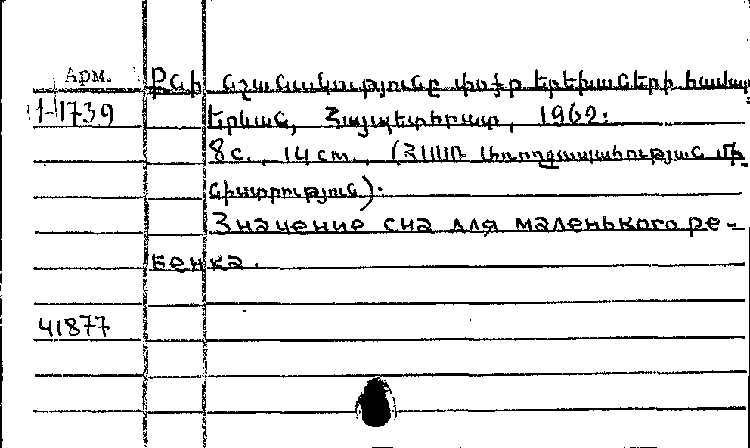 Арм.
Քնի նշանակությունը փոքր երեխաների համար
1-1739
Երևան, Հայպետհրատ, 1962:
8 с., 14 cm., (ՀՍՍՌ Առողջապահության մի-
նիստրություն):
Значение сна для маленького ре-
бенка.
41877